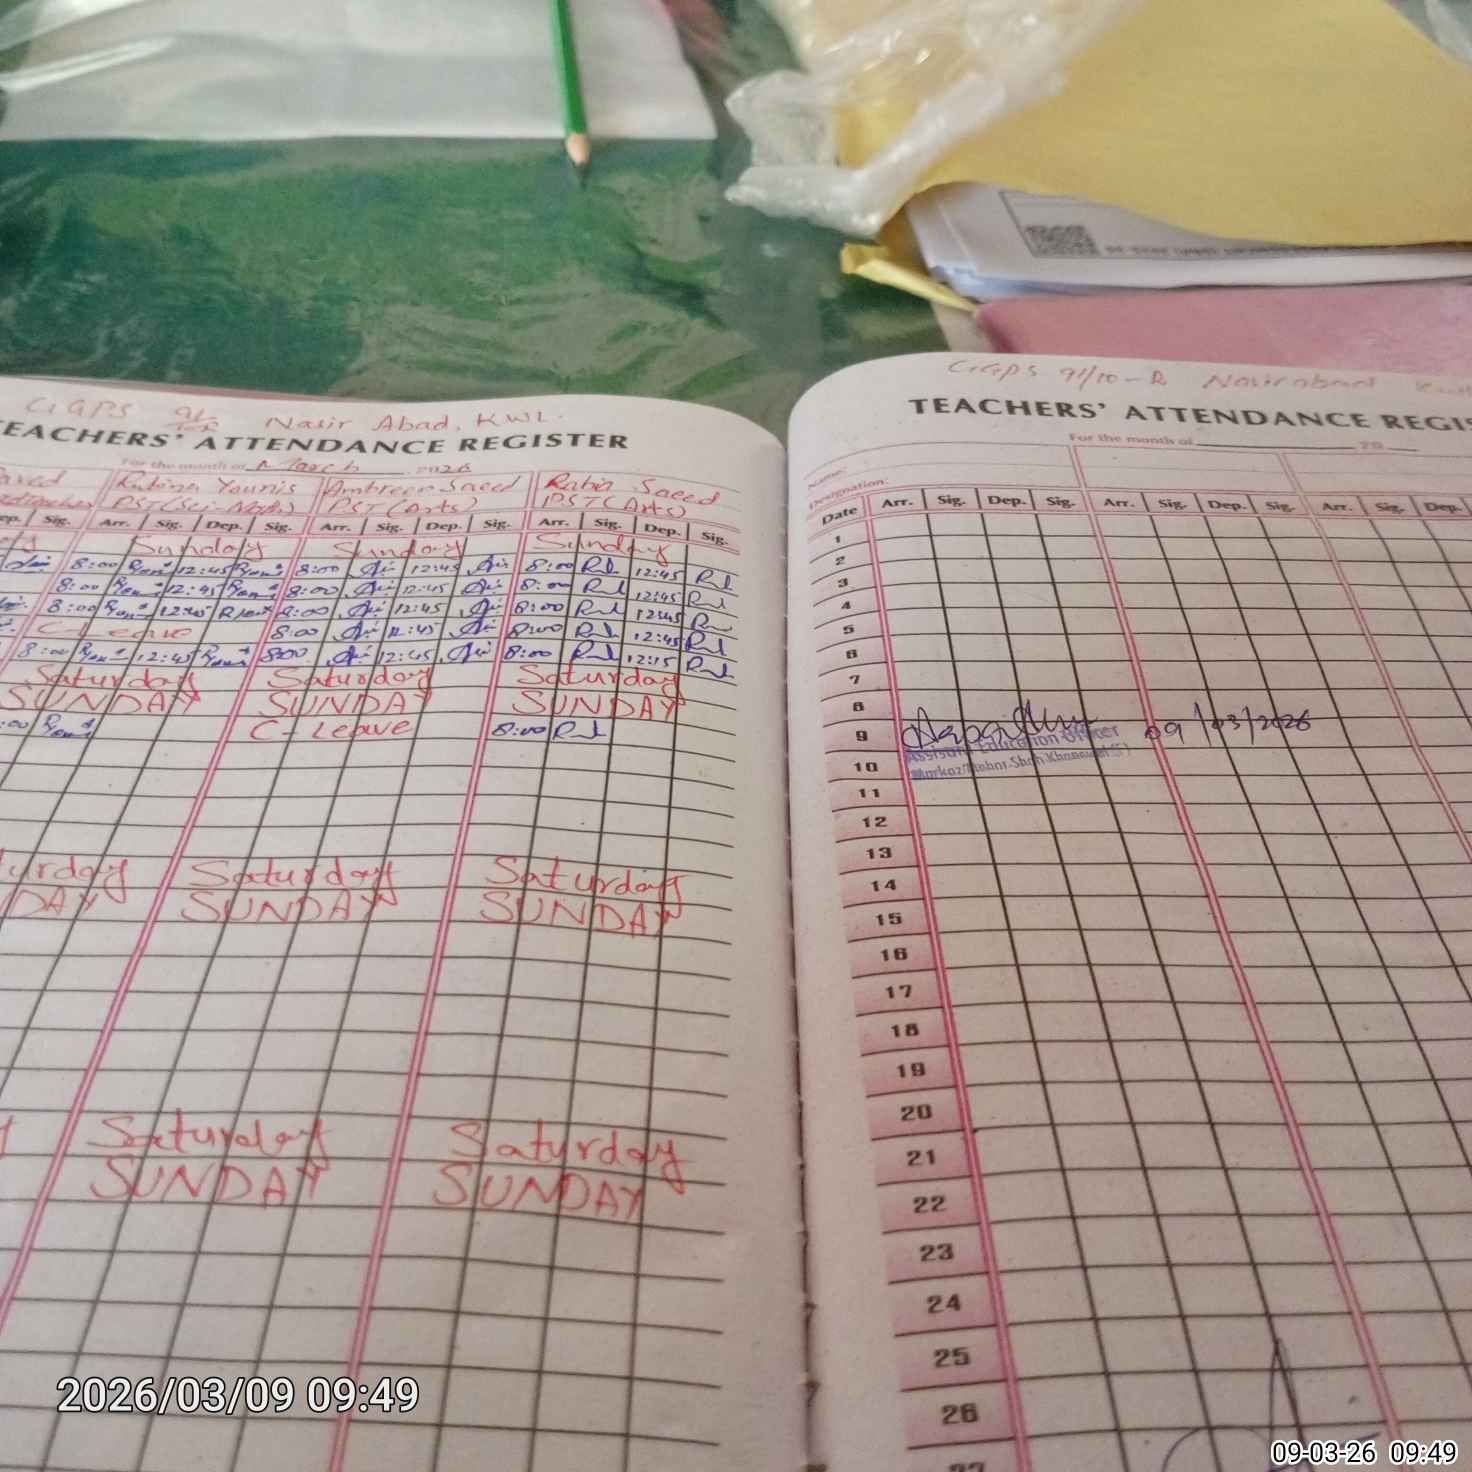 GGPS 91/10-R Nasir Abad, KWL.
TEACHERS' ATTENDANCE REGISTER
For the month of March 2026
Rubina Younis Ambreen Saeed Rabia Saeed
PST (Sci-Math) PST (Arts) PST (Arts)
Sig. Arr. Sig. Dep. Sig. Arr. Sig. Dep. Sig. Arr. Sig. Dep. Sig.
Sunday Sunday Sunday
8:00 12:45 8:00 12:45 8:00 12:45
8:00 12:45 8:00 12:45 8:00 12:45
8:00 12:45 8:00 12:45 8:00 12:45
C-Leave 8:00 12:45 8:00 12:45
8:00 12:45 8:00 12:45 8:00 12:15
Saturday Saturday Saturday
SUNDAY SUNDAY SUNDAY
C-Leave 8:00
Saturday Saturday
SUNDAY SUNDAY
Saturday Saturday
SUNDAY SUNDAY
GGPS 91/10-R Nasirabad
TEACHERS' ATTENDANCE REGIS
For the month of 20
Name:
Designation:
Date Arr. Sig. Dep. Sig. Arr. Sig. Dep. Sig. Arr. Sig. Dep.
1
2
3
4
5
6
7
8
9 09/03/2026
Assistant Education Officer
10
11
12
13
14
15
16
17
18
19
20
21
22
23
24
25
26
27
2026/03/09 09:49
09-03-26 09:49